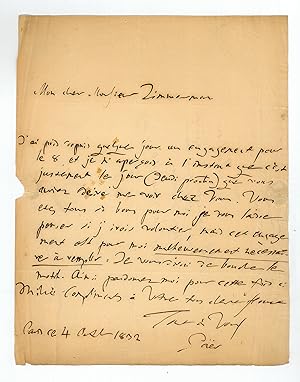 Mon cher Monsieur Zimmerman
J'ai pris depuis quelque jour un engagement pour
le 8 et je m'aperçois à l'instant que c'est
justement le jour (Jeudi prochain) que vous
aviez désiré me voir chez vous. Vous
etes tous si bons pour moi je vous laisse
penser si j'irois volontier, mais cet engage
ment est pour moi malheureusement nécessai
re à remplir. Je
Ainsi pardonnez moi pour cette fois ci
Milles compliments à Votre très chere femme
Tout à Vous
Paer
Paris ce 4 1832